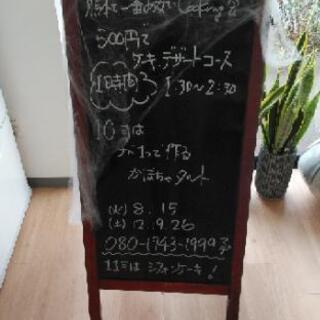 500円で
ケーキ、デザートコース
1時間
1:30〜2:30
10月は
作る
かぼちゃタルト
(火) 8.15
(土) 12.9.26
080-1943-1999
11月はシフォンケーキ!